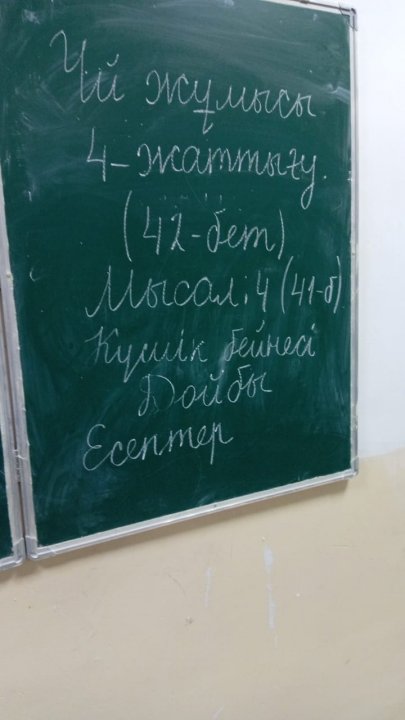 Үй жұмысы
4-жаттығу.
(42-бет)
Мысал: 4 (41-б)
Күшік бейнесі
Дойбы
Есептер